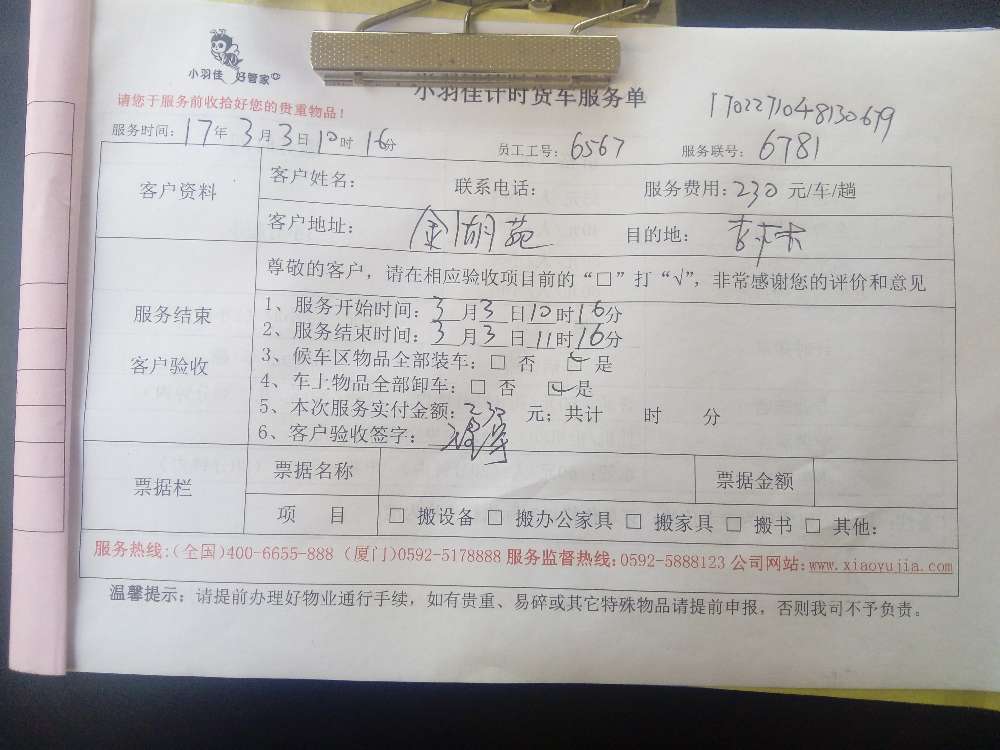 小羽佳 好管家
小羽佳计时货车服务单
请您于服务前收拾好您的贵重物品！
1702271048130679
服务时间：17年3月3日10时16分 员工工号：6567 服务联号：6781
客户资料 客户姓名： 联系电话： 服务费用：230 元/车/趟
客户地址： 金湖苑 目的地：
尊敬的客户，请在相应验收项目前的“□”打“√”，非常感谢您的评价和意见
服务结束
客户验收
1、服务开始时间：3月3日10时16分
2、服务结束时间：3月3日11时16分
3、候车区物品全部装车：□ 否 ☑ 是
4、车上物品全部卸车：□ 否 ☑ 是
5、本次服务实付金额：230 元；共计 时 分
6、客户验收签字：
票据栏 票据名称 票据金额
项 目 □ 搬设备 □ 搬办公家具 □ 搬家具 □ 搬书 □ 其他：
服务热线：（全国）400-6655-888（厦门）0592-5178888 服务监督热线：0592-5888123 公司网站：www.xiaoyujia.com
温馨提示：请提前办理好物业通行手续，如有贵重、易碎或其它特殊物品请提前申报，否则我司不予负责。